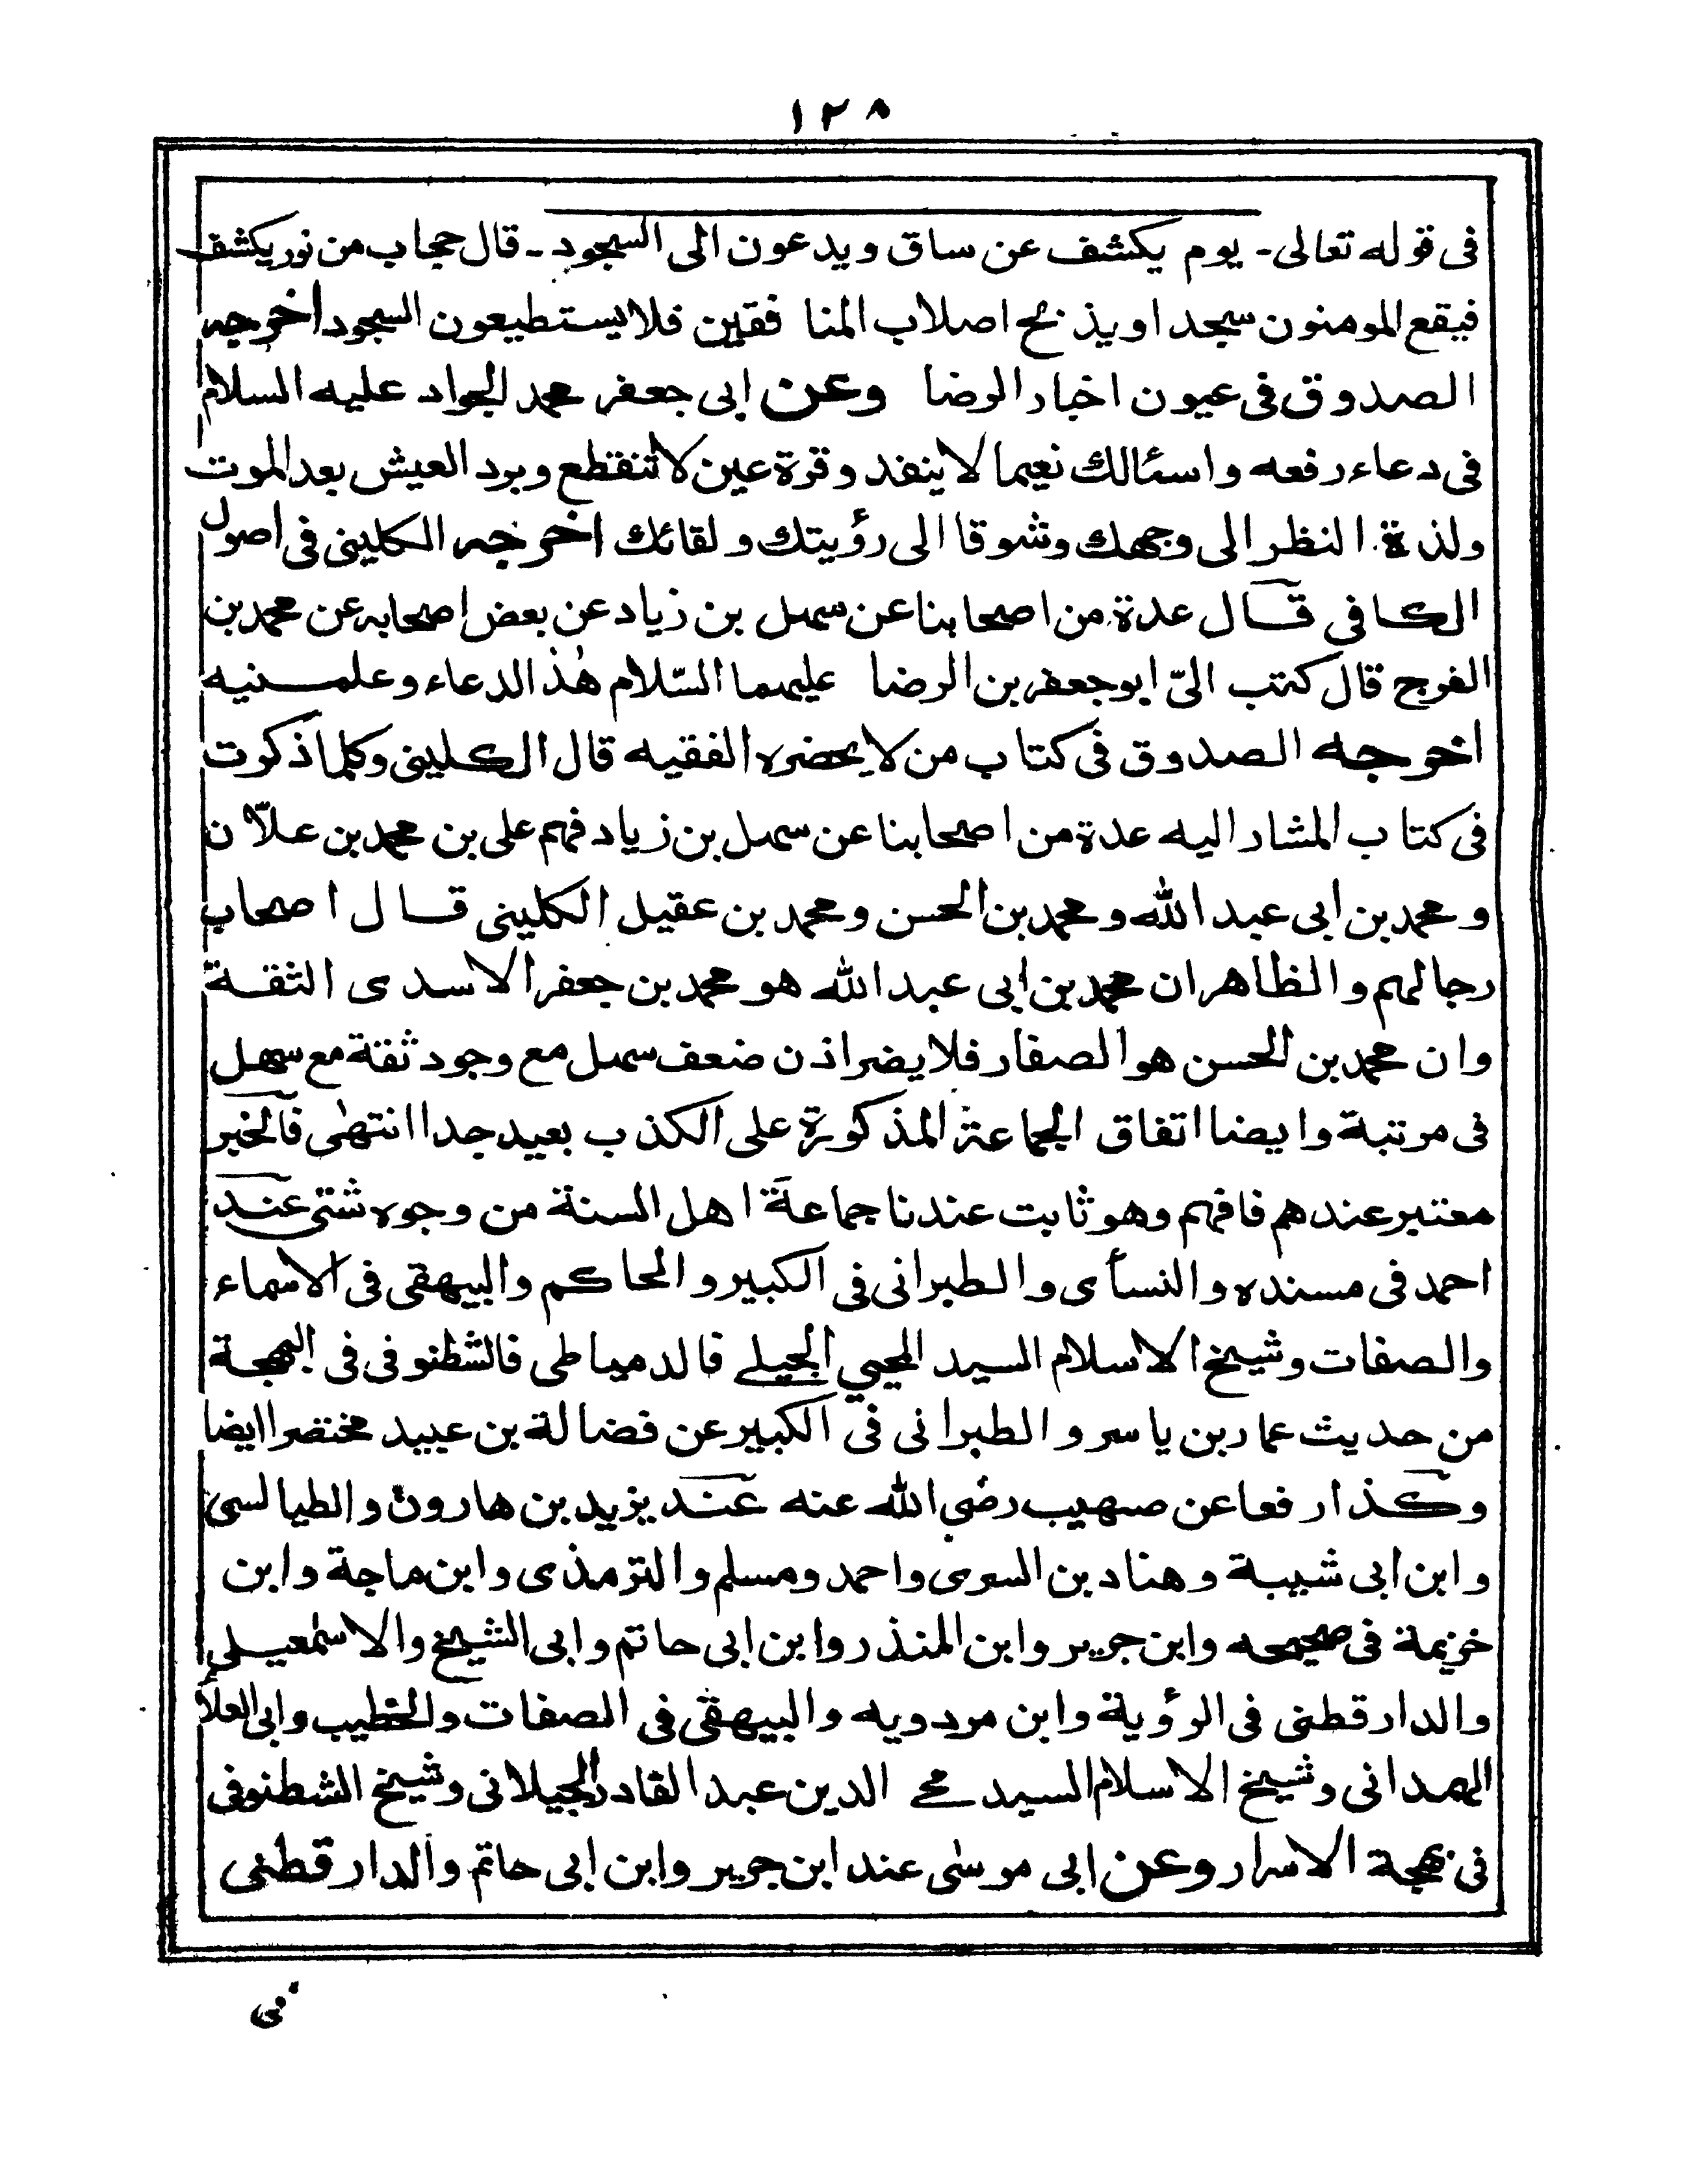 ١٢٨
فى قوله تعالى - يوم يكشف عن ساق ويدعون الى السجود - قال حجاب من نور يكشف
فيقع المومنون سجدا ويذبح اصلاب المنافقين فلا يستطيعون السجود اخرجه
الصدوق فى عيون اخبار الرضا وعن ابى جعفر محمد الجواد عليه السلام
فى دعاء رفعه واسئالك نعيما لا ينفد وقرة عين لا تنقطع وبرد العيش بعد الموت
ولذة النظر الى وجهك وشوقا الى رؤيتك ولقائك اخرجه الكلينى فى اصول
الكافى قال عدة من اصحابنا عن سهل بن زياد عن بعض اصحابه عن محمد بن
الفرج قال كتب الىّ ابو جعفر بن الرضا عليهما السّلام هٰذ الدعاء وعلمنيه
اخرجه الصدوق فى كتاب من لا يحضره الفقيه قال الكلينى وكلما ذكرت
فى كتاب المشار اليه عدة من اصحابنا عن سهل بن زياد فهم على بن محمد بن علاّن
ومحمد بن ابى عبد الله ومحمد بن الحسن ومحمد بن عقيل الكلينى قال اصحاب
رجالهم والظاهر ان محمد بن ابى عبد الله هو محمد بن جعفر الاسدى الثقة
وان محمد بن الحسن هو الصفار فلا يضر اذن ضعف سهل مع وجود ثقة مع سهل
فى مرتبة وايضا اتفاق الجماعة المذكورة على الكذب بعيد جدا انتهٰى فالخبر
معتبر عندهم فافهم وهو ثابت عندنا جماعة اهل السنة من وجوه شتى عند
احمد فى مسنده والنسأى والطبرانى فى الكبير والحاكم والبيهقى فى الاسماء
والصفات وشيخ الاسلام السيد المحيي الجيلے فالدمياطى فالشطنوفى فى البهجة
من حديث عمار بن ياسر والطبرانى فى الكبير عن فضالة بن عبيد مختصرا ايضا
وكذا رفعا عن صهيب رضى الله عنه عند يزيد بن هارون والطيالسى
وابن ابى شيبة وهناد بن السرى واحمد ومسلم والترمذى وابن ماجة وابن
خزيمة فى صحيحه وابن جرير وابن المنذر وابن ابى حاتم وابى الشيخ والاسمٰعيلى
والدارقطنى فى الرؤية وابن مردويه والبيهقى فى الصفات والخطيب وابى العلاً
الهمدانى وشيخ الاسلام السيد محے الدين عبد القادر الجيلانى وشيخ الشطنوفى
فى بهجة الاسرار وعن ابى موسٰى عند ابن جرير وابن ابى حاتم والدارقطنى
فى